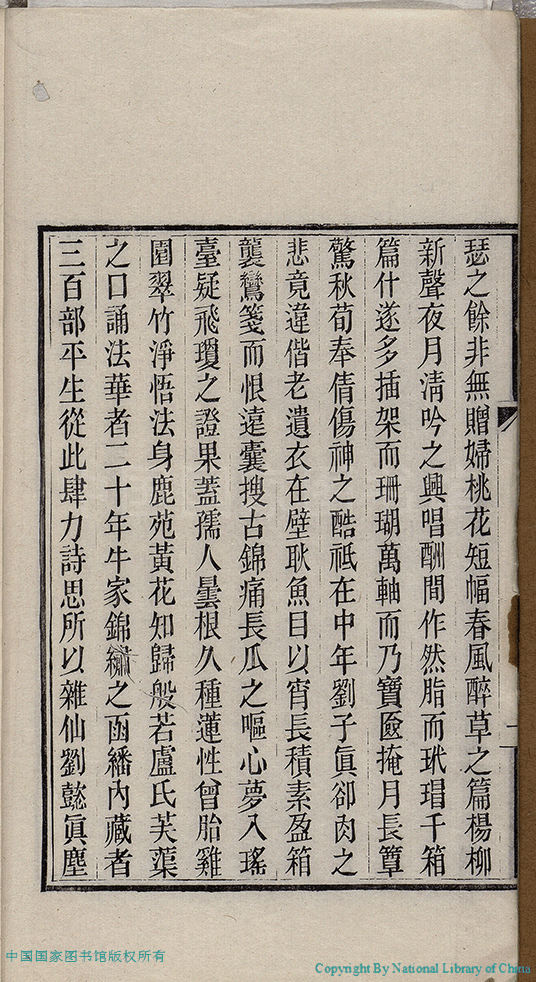 瑟之餘非無贈婦桃花短幅春風醉草之篇楊柳
新聲夜月淸吟之興唱酬間作然脂而玳瑁千箱
篇什遂多插架而珊瑚萬軸而乃寶匳掩月長簟
驚秋荀奉倩傷神之酷祗在中年劉子眞卻肉之
悲竟違偕老遺衣在壁耿魚目以宵長積素盈箱
襲鸞箋而恨遠囊搜古錦痛長瓜之嘔心夢入瑤
臺疑飛瓊之證果蓋孺人曇根久種蓮性曾胎雞
園翠竹淨悟法身鹿苑黃花知歸般若盧氏芙蕖
之口誦法華者二十年牛家錦繡之函繙內藏者
三百部平生從此肆力詩思所以雜仙劉懿眞塵
中国国家图书馆版权所有
Copyright By National Library of China